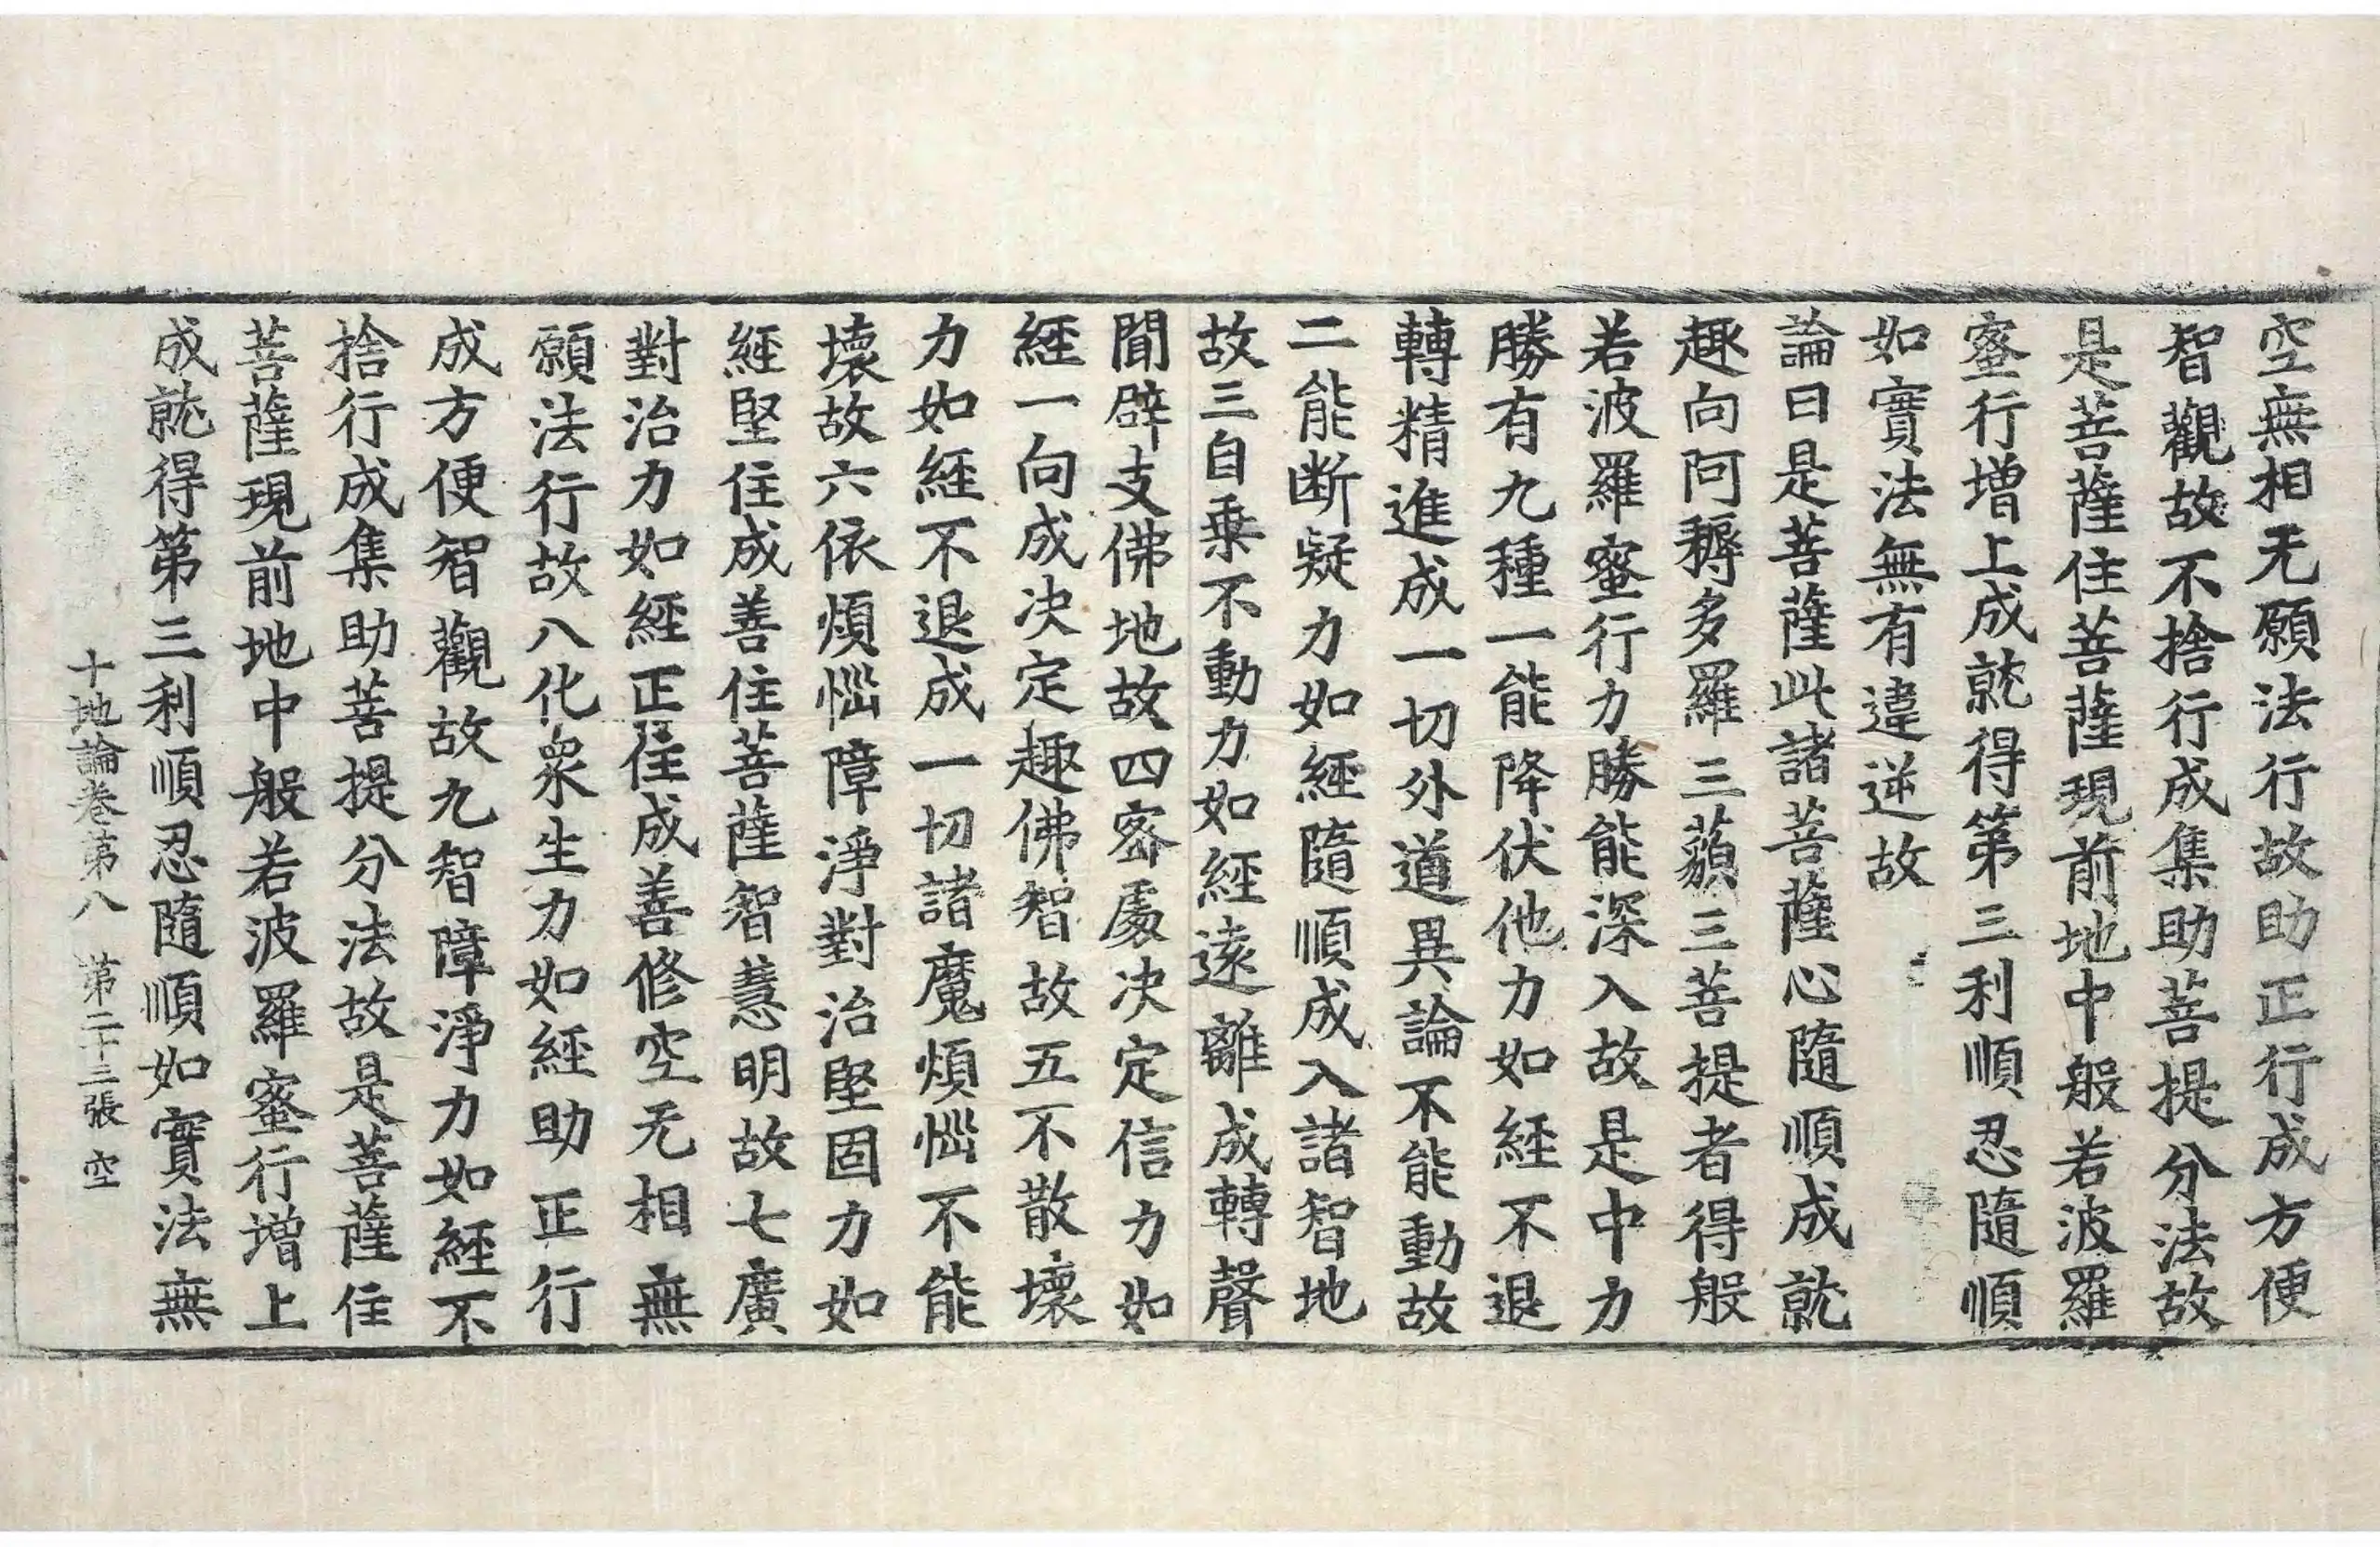 空無相无願法行故助正行成方便
智觀故不捨行成集助菩提分法故
是菩薩住菩薩現前地中般若波羅
蜜行增上成就得第三利順忍隨順
如實法無有違逆故
論曰是菩薩此諸菩薩心隨順成就
趣向阿耨多羅三藐三菩提者得般
若波羅蜜行力勝能深入故是中力
勝有九種一能降伏他力如經不退
轉精進成一切外道異論不能動故
二能断疑力如經隨順成入諸智地
故三自乗不動力如經遠離成轉聲
聞辟支佛地故四密處决定信力如
經一向成决定趣佛智故五不散壞
力如經不退成一切諸魔煩惱不能
壞故六依煩惱障淨對治堅固力如
經堅住成善住菩薩智慧明故七廣
對治力如經正住成善修空无相無
願法行故八化衆生力如經助正行
成方便智觀故九智障淨力如經不
捨行成集助菩提分法故是菩薩住
菩薩現前地中般若波羅蜜行增上
成就得第三利順忍隨順如實法無
十地論卷第八 第二十三張 空